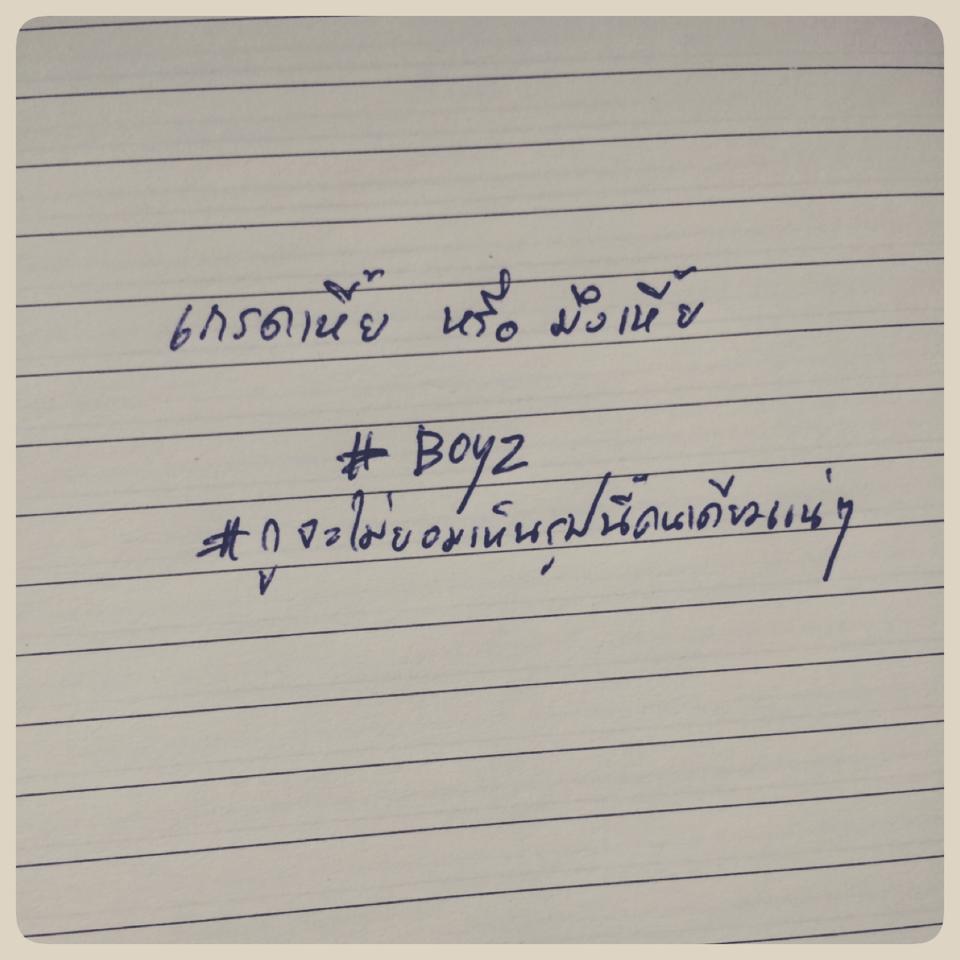 เกรดเหี้ย หรือ มึงเหี้ย
# Boyz
#กูจะไม่ยอมเห็นรูปนี้คนเดียวแน่ๆ